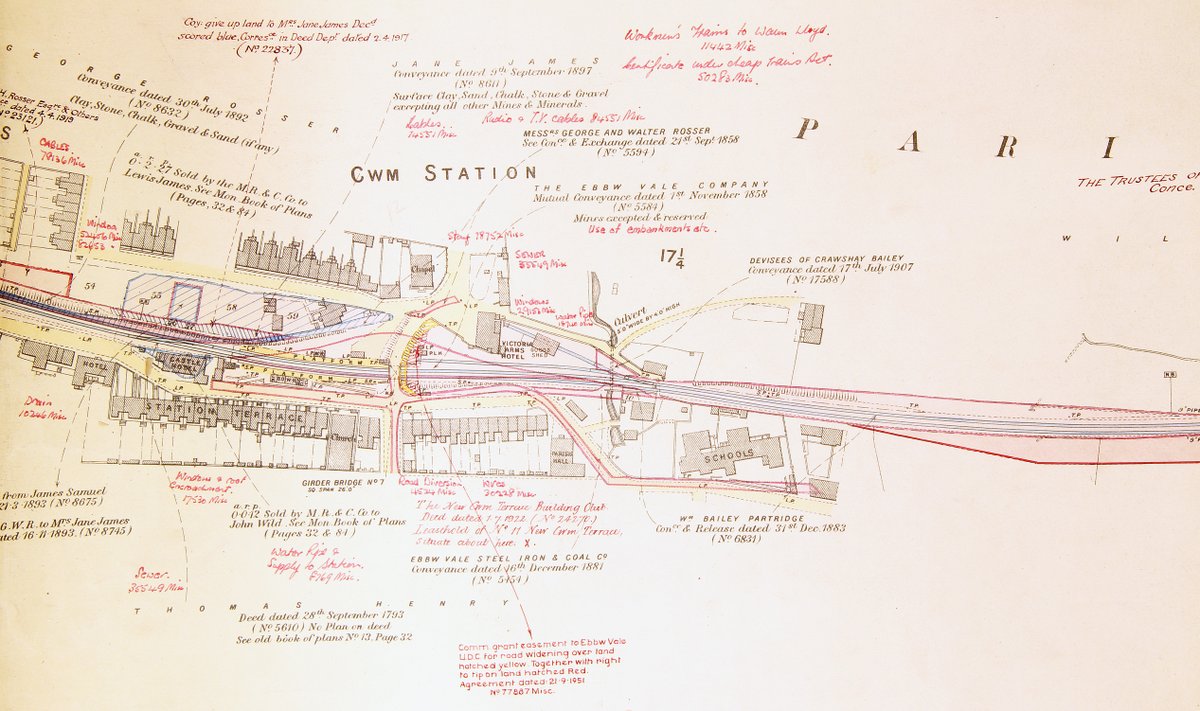 Coy: give up land to Mrs Jane James Decd
scored blue, Corresce in Deed Dept dated 2.4.1917
(No 22837.)
Workmen's Trains to Waun Lloyd.
11442 Misc
Certificate under cheap Trains Act.
50283 Misc.
GEORGE ROSSER
Conveyance dated 30th July 1892
(No 8632)
Clay, Stone, Chalk, Gravel & Sand (if any)
H. Rosser Esqre & Others
dated 4.4.1919
No 23121.)
JANE JAMES
Conveyance dated 9th September 1897
(No 8611)
Surface Clay, Sand, Chalk, Stone & Gravel
excepting all other Mines & Minerals.
Cables.
74551 Misc
Radio & T.V. cables 84551 Misc
MESSRS GEORGE AND WALTER ROSSER
See Conce & Exchange dated 21st Sept 1858
(No 5594)
PARI
THE TRUSTEES OF
Conce.
WIL
S
CABLES
79136 Misc
a. r. p.
0.2.27 Sold by the M.R. & C. Co to
Lewis James. See Mon. Book of Plans
(Pages, 32 & 84)
CWM STATION
THE EBBW VALE COMPANY
Mutual Conveyance dated 1st November 1858
(No 5584)
Mines excepted & reserved
Use of embankments etc.
17 1/4
DEVISEES OF CRAWSHAY BAILEY
Conveyance dated 17th July 1907
(No 17588)
Window
52456 Misc
Stay 78752 Misc
SEWER
35549 Misc
Chapel
Windows
Water Pipe
Culvert
5'0" WIDE BY 4'0" HIGH
54
55
58
59
VICTORIA ARMS HOTEL
HOTEL
CASTLE HOTEL
PLATFORM
PLATFORM
Drain
10246 Misc
STATION TERRACE
Church
SCHOOLS
GIRDER BRIDGE No 7
SQ. SPAN 26.0
from James Samuel
21-3-1893 (No 8675)
G.W.R. to Mrs Jane James
dated 16-11-1893. (No 8745)
Window & roof
Encroachment.
17530 Misc
a. r. p.
0.0.12 Sold by M.R. & C. Co to
John Wild. See Mon. Book of Plans
(Pages 32 & 84)
Road Diversion
4524 Misc
Wires
30228 Misc
The New Cwm Terrace Building Club
Deed dated 1-7-1922 (No 24270)
Leasehold of No 11 New Cwm Terrace,
situate about here. X.
WM BAILEY PARTRIDGE
Conce & Release dated 31st Dec. 1883
(No 6831)
Water Pipe &
Supply to Station.
8769 Misc.
EBBW VALE STEEL IRON & COAL Co
Conveyance dated 16th December 1881
(No 5454)
Sewer.
35549 Misc
THOMAS HENRY
Deed dated 28th September 1793
(No 5610) No Plan on deed
See old book of plans No 13, Page 32
Comm. grant easement to Ebbw Vale
U.D.C for road widening over land
hatched yellow. Together with right
to tip on land hatched Red.
Agreement dated 21-9-1951
No 77887 Misc.